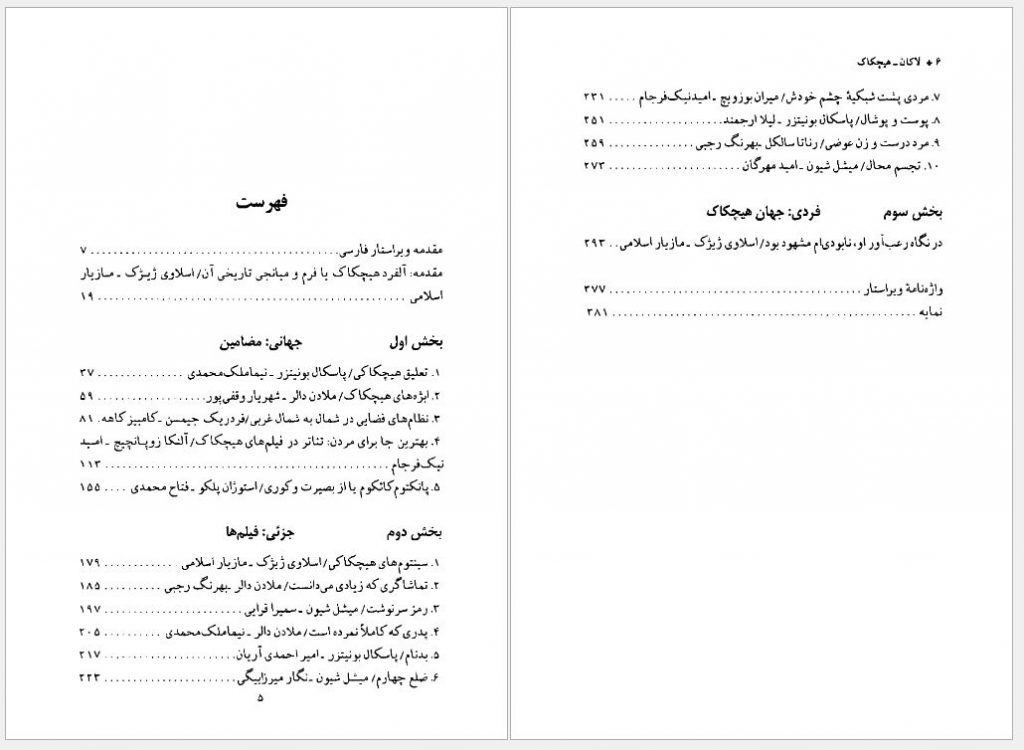 فهرست
مقدمه ویراستار فارسی ........................................ ۷
مقدمه: آلفرد هیچکاک یا فرم و میانجی تاریخی آن/ اسلاوی ژیژک ـ مازیار
اسلامی ................................................ ۱۹
بخش اول جهانی: مضامین
۱. تعلیق هیچکاکی/ پاسکال بونیتزر ـ نیماملک‌محمدی ............... ۳۷
۲. ابژه‌های هیچکاک/ ملادن دالر ـ شهریار وقفی‌پور ................... ۵۹
۳. نظام‌های فضایی در شمال به شمال غربی/ فردریک جیمسن ـ کامبیز کاهه. ۸۱
۴. بهترین جا برای مردن: تئاتر در فیلم‌های هیچکاک/ آلنکا زوپانچیچ ـ امید
نیک‌فرجام ............................................. ۱۱۳
۵. پانکتوم کائکوم یا از بصیرت و کوری/ استوژان پلکو ـ فتاح محمدی .... ۱۵۵
بخش دوم جزئی: فیلم‌ها
۱. سینتوم‌های هیچکاکی/ اسلاوی ژیژک ـ مازیار اسلامی ............ ۱۷۹
۲. تماشاگری که زیادی می‌دانست/ ملادن دالر ـ بهرنگ رجبی .......... ۱۸۵
۳. رمز سرنوشت/ میشل شیون ـ سمیرا قرایی ....................... ۱۹۷
۴. پدری که کاملاً نمرده است/ ملادن دالر ـ نیماملک‌محمدی .......... ۲۰۵
۵. بدنام/ پاسکال بونیتزر ـ امیر احمدی آریان ...................... ۲۱۷
۶. ضلع چهارم/ میشل شیون ـ نگار میرزابیگی ...................... ۲۲۳
۵
۶ ♦ لاکان ـ هیچکاک
۷. مردی پشت شبکیهٔ چشم خودش/ میران بوزوویچ ـ امیدنیک‌فرجام ..... ۲۳۱
۸. پوست و پوشال/ پاسکال بونیتزر ـ لیلا ارجمند .................... ۲۵۱
۹. مرد درست و زن عوضی/ رناتا سالکل ـ بهرنگ رجبی ............... ۲۵۹
۱۰. تجسم محال/ میشل شیون ـ امید مهرگان ....................... ۲۷۳
بخش سوم فردی: جهان هیچکاک
در نگاه رعب‌آور او، نابودی‌ام مشهود بود/ اسلاوی ژیژک ـ مازیار اسلامی .. ۲۹۳
واژه‌نامهٔ ویراستار ......................................... ۳۷۷
نمایه ................................................. ۳۸۱